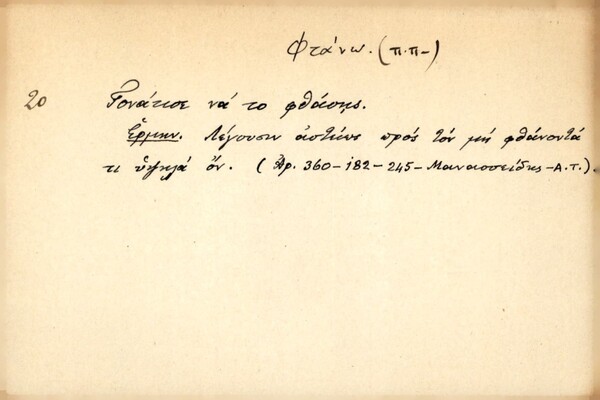 Φτάνω. (π.π-)
20 Γονάτισε νά το φθάσης.
Ἑρμην. Λέγουσιν ἀστείως πρός τόν μή φθάνοντά
τι ὑψηλά ὄν. (Ἀρ. 360-182-245-Μανασσείδης-Α.Τ.).